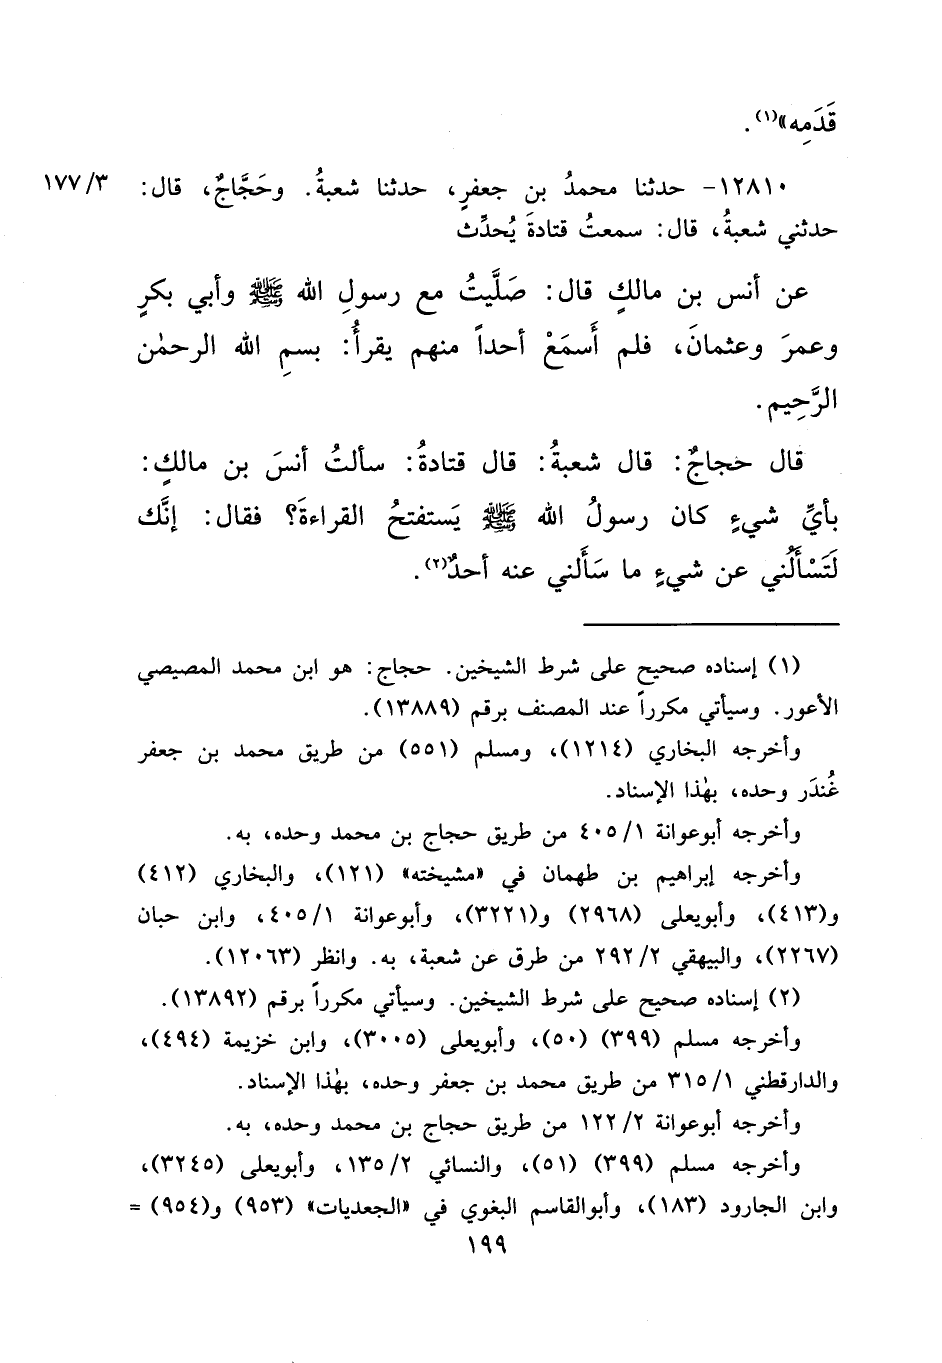 قَدَمِه»(١).
١٢٨١٠- حدثنا محمدُ بن جعفرٍ، حدثنا شعبةُ. وحَجَّاجٌ، قال: ١٧٧/٣
حدثني شعبةُ، قال: سمعتُ قتادةَ يُحدِّث
عن أنس بن مالكٍ قال: صَلَّيتُ مع رسولِ الله ﷺ وأبي بكرٍ
وعمرَ وعثمانَ، فلم أَسمَعْ أحداً منهم يقرأُ: بسمِ الله الرحمٰن
الرَّحِيم.
قال حجاجٌ: قال شعبةُ: قال قتادةُ: سألتُ أنسَ بن مالكٍ:
بأيِّ شيءٍ كان رسولُ الله ﷺ يَستفتحُ القراءةَ؟ فقال: إنَّك
لَتَسْأَلُني عن شيءٍ ما سَأَلني عنه أحدٌ(٢).
(١) إسناده صحيح على شرط الشيخين. حجاج: هو ابن محمد المصيصي
الأعور. وسيأتي مكرراً عند المصنف برقم (١٣٨٨٩).
وأخرجه البخاري (١٢١٤)، ومسلم (٥٥١) من طريق محمد بن جعفر
غُندَر وحده، بهٰذا الإسناد.
وأخرجه أبوعوانة ٤٠٥/١ من طريق حجاج بن محمد وحده، به.
وأخرجه إبراهيم بن طهمان في «مشيخته» (١٢١)، والبخاري (٤١٢)
و(٤١٣)، وأبويعلى (٢٩٦٨) و(٣٢٢١)، وأبوعوانة ٤٠٥/١، وابن حبان
(٢٢٦٧)، والبيهقي ٢٩٢/٢ من طرق عن شعبة، به. وانظر (١٢٠٦٣).
(٢) إسناده صحيح على شرط الشيخين. وسيأتي مكرراً برقم (١٣٨٩٢).
وأخرجه مسلم (٣٩٩) (٥٠)، وأبويعلى (٣٠٠٥)، وابن خزيمة (٤٩٤)،
والدارقطني ٣١٥/١ من طريق محمد بن جعفر وحده، بهٰذا الإسناد.
وأخرجه أبوعوانة ١٢٢/٢ من طريق حجاج بن محمد وحده، به.
وأخرجه مسلم (٣٩٩) (٥١)، والنسائي ١٣٥/٢، وأبويعلى (٣٢٤٥)،
وابن الجارود (١٨٣)، وأبوالقاسم البغوي في «الجعديات» (٩٥٣) و(٩٥٤) =
١٩٩